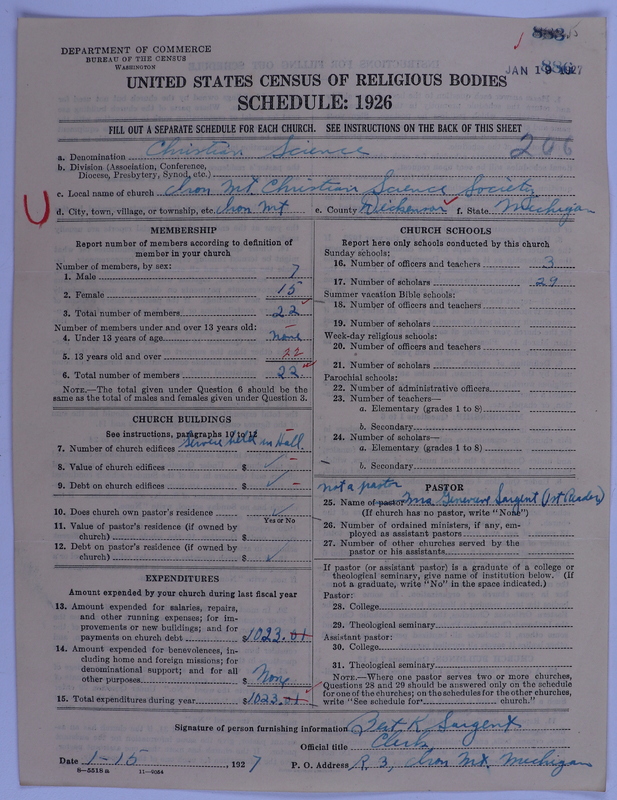 DEPARTMENT OF COMMERCE
BUREAU OF THE CENSUS
WASHINGTON
JAN 19 1927
UNITED STATES CENSUS OF RELIGIOUS BODIES
SCHEDULE: 1926
FILL OUT A SEPARATE SCHEDULE FOR EACH CHURCH. SEE INSTRUCTIONS ON THE BACK OF THIS SHEET
a. Denomination Christian Science 206
b. Division (Association, Conference,
Diocese, Presbytery, Synod, etc.)
c. Local name of church Iron Mt Christian Science Society
d. City, town, village, or township, etc. Iron Mt e. County Dickenson f. State Michigan
MEMBERSHIP
Report number of members according to definition of
member in your church
Number of members, by sex:
1. Male 7
2. Female 15
3. Total number of members 22
Number of members under and over 13 years old:
4. Under 13 years of age None
5. 13 years old and over 22
6. Total number of members 22
NOTE.—The total given under Question 6 should be the
same as the total of males and females given under Question 3.
CHURCH BUILDINGS
See instructions, paragraphs 10 to 12
7. Number of church edifices Service held in Hall.
8. Value of church edifices $
9. Debt on church edifices $
10. Does church own pastor's residence
Yes or No
11. Value of pastor's residence (if owned by
church) $
12. Debt on pastor's residence (if owned by
church) $
EXPENDITURES
Amount expended by your church during last fiscal year
13. Amount expended for salaries, repairs,
and other running expenses; for im-
provements or new buildings; and for
payments on church debt $1023.01
14. Amount expended for benevolences, in-
cluding home and foreign missions; for
denominational support; and for all
other purposes $ None
15. Total expenditures during year $1023.01
CHURCH SCHOOLS
Report here only schools conducted by this church
Sunday schools:
16. Number of officers and teachers 3
17. Number of scholars 29
Summer vacation Bible schools:
18. Number of officers and teachers
19. Number of scholars
Week-day religious schools:
20. Number of officers and teachers
21. Number of scholars
Parochial schools:
22. Number of administrative officers
23. Number of teachers—
a. Elementary (grades 1 to 8)
b. Secondary
24. Number of scholars—
a. Elementary (grades 1 to 8)
b. Secondary
PASTOR
not a pastor
25. Name of pastor Mrs Genevieve Sargent (1st Reader)
(If church has no pastor, write "None")
26. Number of ordained ministers, if any, em-
ployed as assistant pastors
27. Number of other churches served by the
pastor or his assistants
If pastor (or assistant pastor) is a graduate of a college or
theological seminary, give name of institution below. (If
not a graduate, write "No" in the space indicated.)
Pastor:
28. College
29. Theological seminary
Assistant pastor:
30. College
31. Theological seminary
NOTE.—Where one pastor serves two or more churches,
Questions 28 and 29 should be answered only on the schedule
for one of the churches; on the schedules for the other churches,
write "See schedule for church."
Signature of person furnishing information Bert K Sargent
Official title Clerk
Date 1-15, 1927 P. O. Address R 3, Iron Mt. Michigan
8-5518a 11-9054